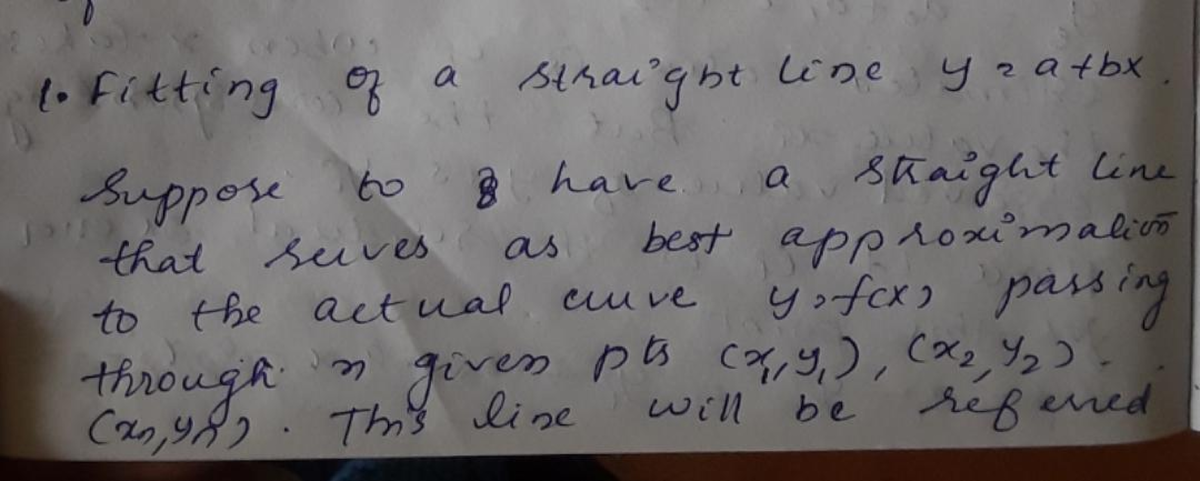 1. Fitting of a straight line y = a+bx.
Suppose to have a straight line
that serves as best approximation
to the actual curve y=f(x) passing
through n given pts (x₁,y₁), (x₂,y₂) . .
(xn,yn). This line will be referred